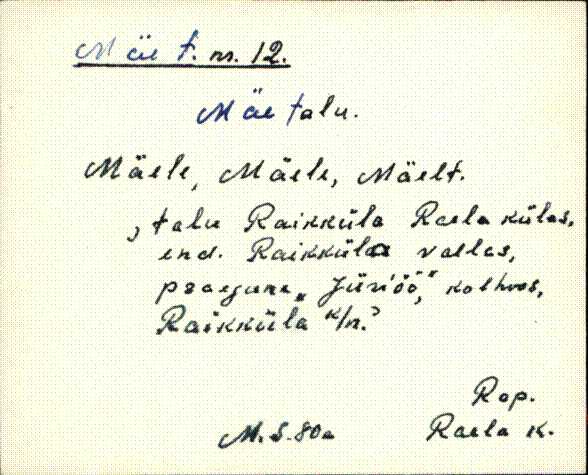 Mäe t. nr. 12.
Mäe talu.
Mäele, Mäele, Mäelt.
, talu Raikküla Raela külas,
end. Raikküla vallas,
praegune „Jüriöö," kolhoos,
Raikküla k/n.'
Rap.
M. S. 80a Raela k.